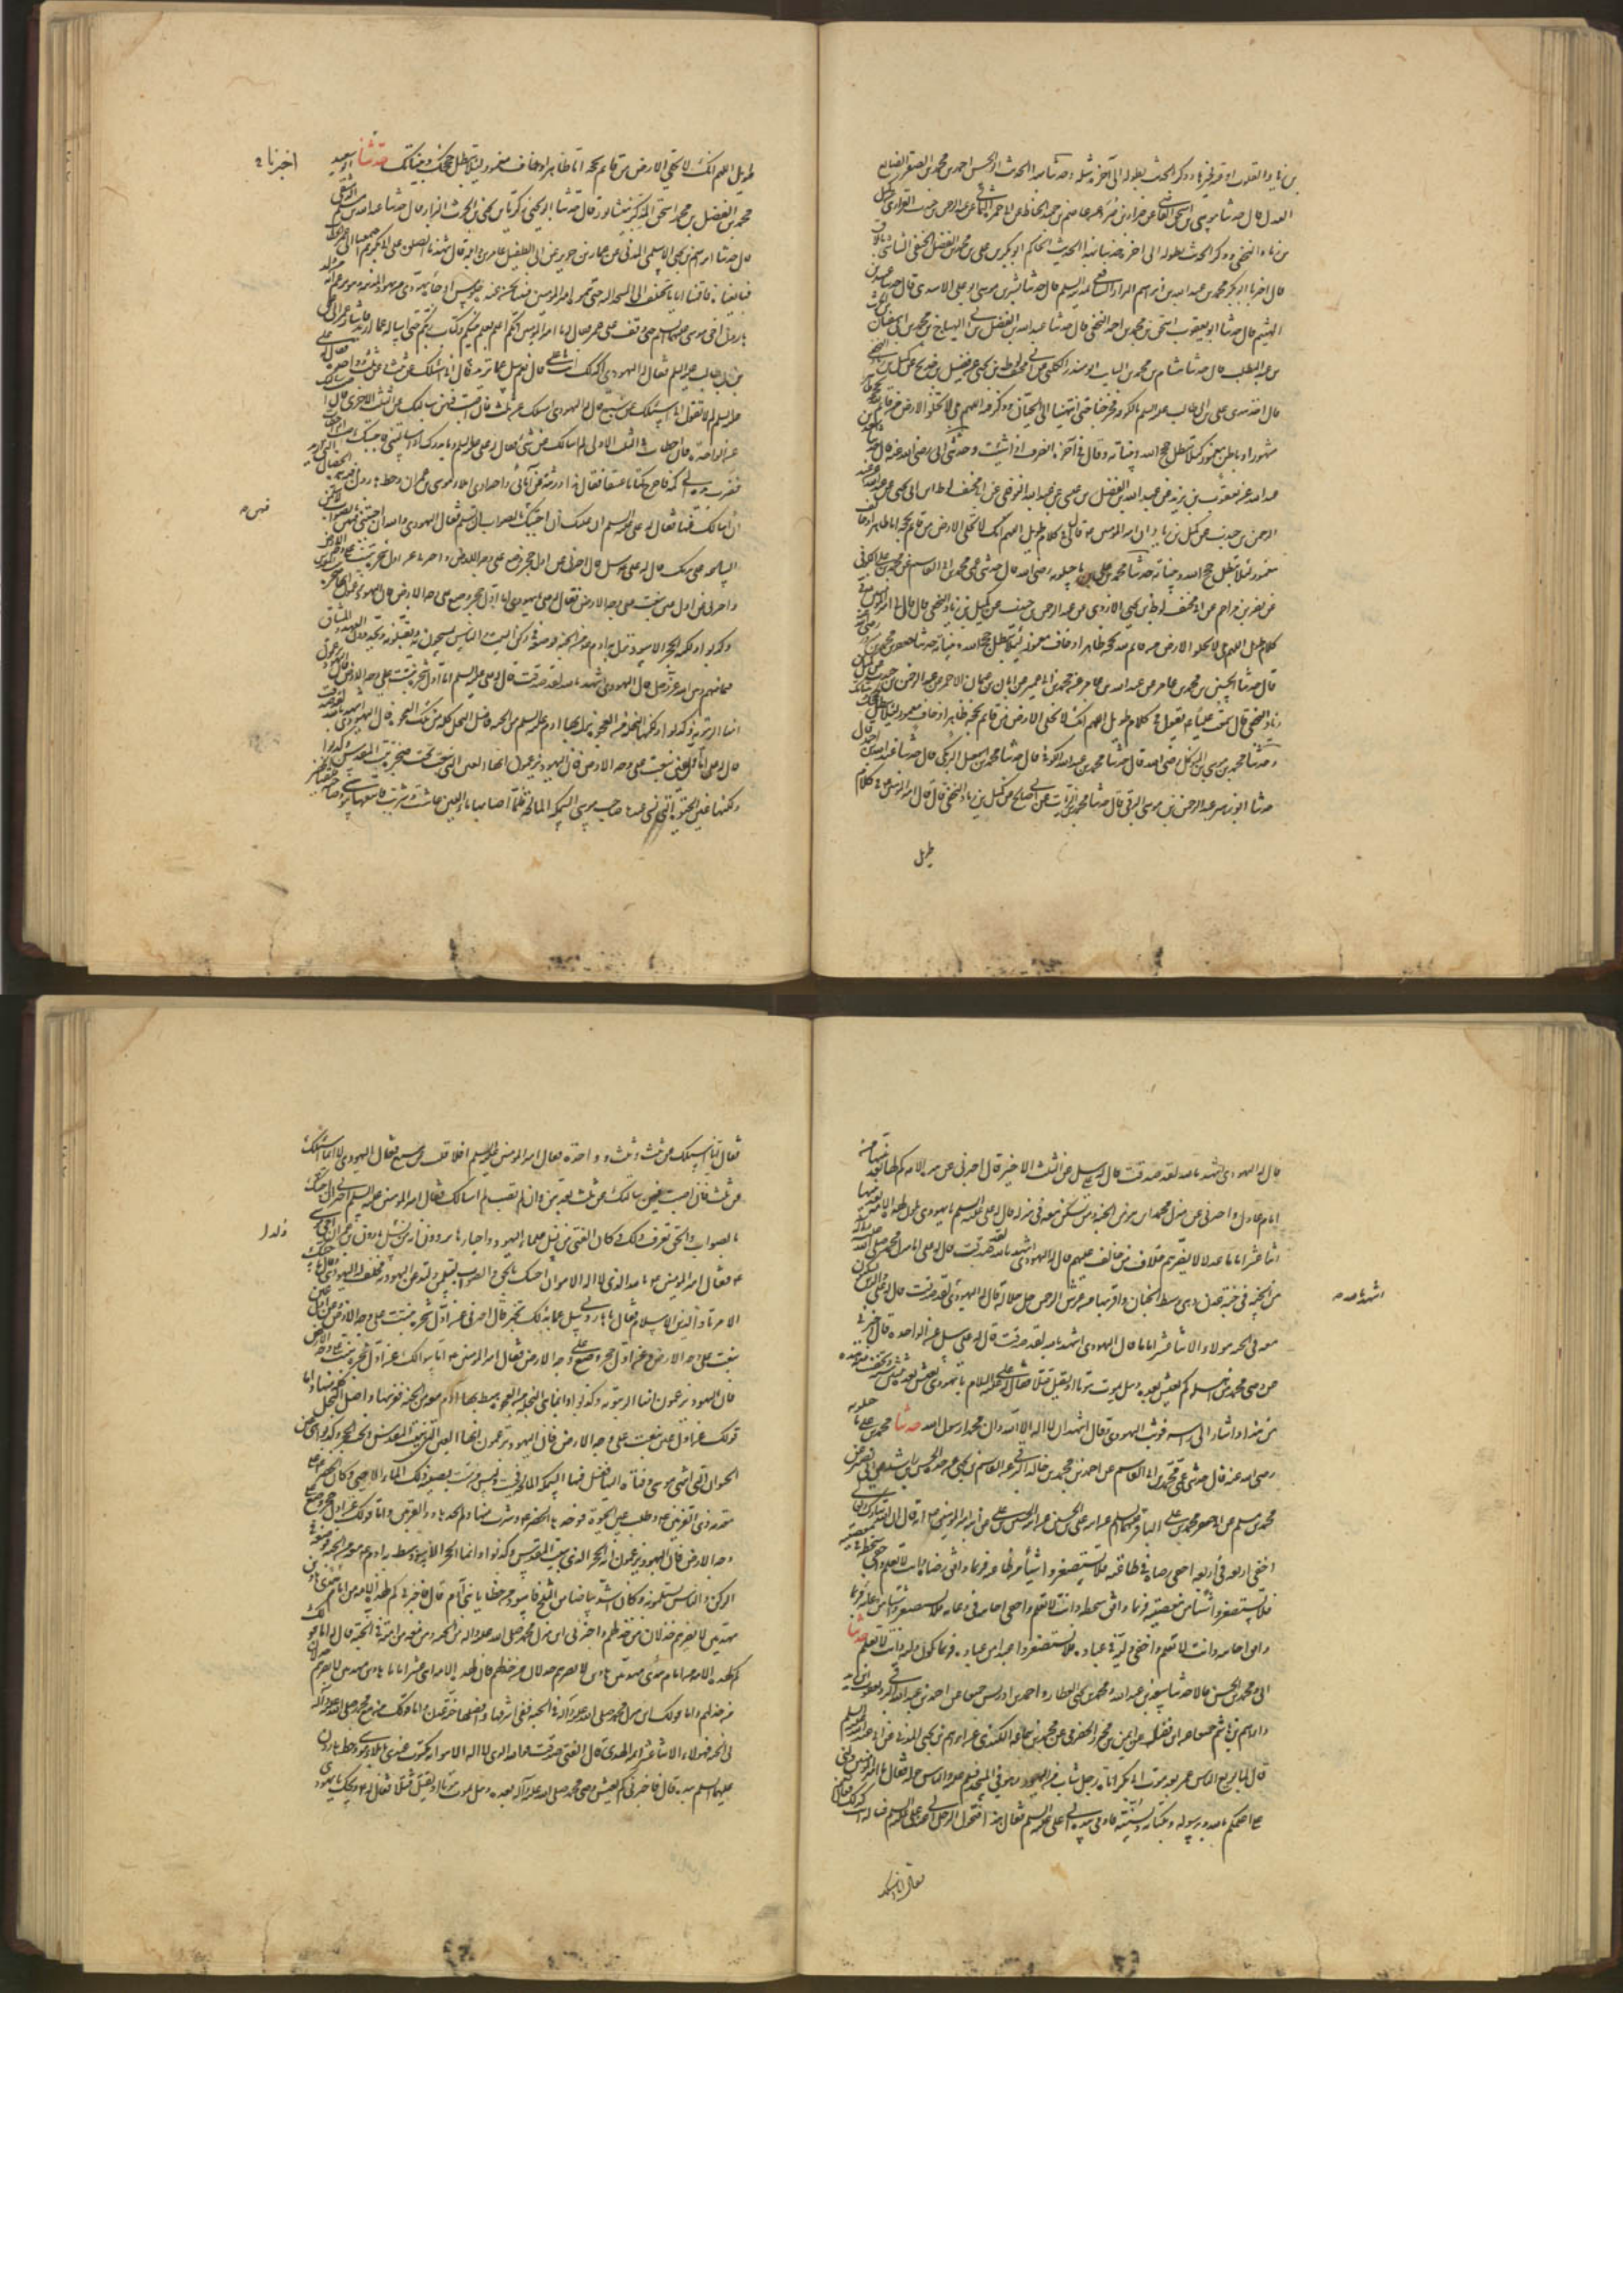 بن زياد القلوب اوعية فخيرها وذكر الحديث بطوله الى آخره مثله وحدثنا بهذا الحديث ابو الحسن احمد بن محمد بن الصقر الصايغ
العدل قال حدثنا موسى بن اسحق القاضي عن ضرار بن صرد عن عاصم بن حميد الحناط عن ابي حمزة الثمالي عن عبد الرحمن بن جندب الفزاري عن كميل
بن زياد النخعي وذكر الحديث بطوله الى اخره وحدثنا بهذا الحديث الحاكم ابو بكر بن علي بن محمد بن الفضل الحنفي الشاشي
قال اخبرنا ابو بكر محمد بن عبد الله بن ابراهيم البزاز الشافعي بمدينة السلم قال حدثنا بشر بن موسى ابو علي الاسدي قال حدثنا عبيد بن
الهيثم قال حدثنا ابو يعقوب اسحق بن محمد بن احمد النخعي قال حدثنا عبد الله بن الفضل بن
بن عبد المطلب قال حدثنا هشام بن محمد بن السايب ابو منذر الكلبي عن ابي مخنف لوط بن يحيى عن فضيل بن خديج عن كميل بن زياد النخعي
قال اخذ بيدي علي بن ابي طالب عليه السلم بالكوفة فخرجنا حتى انتهينا الى الجبان وذكر فيه اللهم بلى لا تخلو الارض من قايم بحجة ظاهر
مشهور او باطن مغمور كيلا تبطل حجج الله وبيناته وقال في آخره انصرف اذا شئت وحدثني ابي رضي الله عنه قال حدثنا سعد بن
عبد الله عن يعقوب بن يزيد عن عبد الله بن الفضل بن عيسى عن عبد الله النوفلي عن ابي مخنف لوط بن يحيى عن
الرحمن بن جندب عن كميل بن زياد ان امير المومنين قال في كلام طويل اللهم انك لا تخلي الارض من قايم بحجة اما ظاهر او خاف
مغمور لئلا تبطل حجج الله وبيناته حدثنا محمد بن علي ماجيلويه رضي الله قال حدثني عمي محمد بن ابي القاسم عن محمد بن علي الكوفي
عن نصر بن مزاحم عن ابي مخنف لوط بن يحيى الازدي عن عبد الرحمن بن جندب عن كميل بن زياد النخعي قال قال لي امير المومنين في
كلام طويل اللهم بلى لا تخلو الارض من قايم لله بحجة ظاهر او خاف مغمور لئلا تبطل حجج الله وبيناته حدثنا جعفر بن محمد بن مسرور
قال حدثنا الحسين بن محمد بن عامر عن عبد الله بن عامر عن محمد بن ابي عمير عن ابان بن عثمان الاحمر عن عبد الرحمن بن جندب عن كميل بن
زياد النخعي قال سمعت عليا يقول في كلام طويل اللهم انك لا تخلي الارض من قايم بحجة ظاهر او خاف مغمور لئلا تبطل حججك
وحدثنا محمد بن موسى بن المتوكل رضي الله قال حدثنا محمد بن عبد الله الكوفي قال حدثنا محمد بن اسمعيل البرمكي قال حدثنا عبد الله بن احمد قال
حدثنا ابو زهير عبد الرحمن بن موسى البرقي قال حدثنا محمد بن الزيات عن ابي صالح عن كميل بن زياد النخعي قال قال امير المومنين في كلام
طويل
طويل اللهم انك لا تخلي الارض من قايم بحجة اما ظاهر او خاف مغمور لئلا تبطل حججك وبيناتك حدثنا ابو سعيد
اخبرنا
محمد بن الفضل بن محمد بن اسحق المذكر بنيشابور قال حدثنا ابو يحيى زكريا بن يحيى بن الحرث البزاز قال حدثنا عبد الله بن مسلم الدمشقي
قال حدثنا ابراهيم بن يحيى الاسلمي المدني عن عمارة بن جوين عن ابي الطفيل عامر بن واثلة قال شهدنا الصلوة على ابي بكر ثم اجتمعنا الى عمر بن الخطاب
فبايعناه واقمنا اياما نختلف الى المسجد اليه حتى سموه امير المومنين فبينا نحن عنده جلوس اذ جاءه يهودي من يهود المدينة وهو يزعم انه
هارون اخي موسى عليهما السلم حتى وقف على عمر فقال له يا امير المومنين ايكم اعلم بعلم نبيكم وكتاب ربكم حتى اساله عما اريد فاشار عمر الى علي
بن ابي طالب عليه السلم فقال له اليهودي اكذلك انت يا علي قال نعم سل عما تريد قال اني اسئلك عن ثلث وعن ثلث وواحدة فقال له علي
عليه السلم لم لا تقول اني اسئلك عن سبع قال له اليهودي اسئلك عن ثلث فان اصبت فيهن سالتك عن الثلث الاخرى فان اصبت سالتك
عن الواحدة وان اخطات في الثلث الاولى لم اسالك عن شيء فقال له علي عليه السلم وما يدريك اذا سالتني فاجبتك اخطات ام اصبت
فضرب بيده الى كمه فاخرج كتابا عتيقا فقال هذا ورثته عن آبائي واجدادي املاء موسى بن عمران وخط هارون وفيه هذه الخصال التي اريد
ان اسالك عنها فقال له علي عليه السلم ان عليك ان اجبتك بالصواب ان تسلم فقال اليهودي والله ان اجبتني فيهن بالصواب لاسلمن
فيهن
الساعة على يديك قال له علي سل قال اخبرني عن اول حجر وضع على وجه الارض واخبرني عن اول شجرة نبتت على وجه الارض
واخبرني عن اول عين نبعت على وجه الارض فقال له علي يا يهودي اما اول حجر وضع على وجه الارض فان اليهود يزعمون انها صخرة
وكذبوا ولكنه الحجر الاسود نزل به ادم من الجنة فوضعه في ركن البيت والناس يتمسحون به ويقبلونه ويجددون العهد والميثاق
فيما بينهم وبين الله عز وجل قال اليهودي اشهد بالله لقد صدقت قال له علي عليه السلم واما اول شجرة نبتت على وجه الارض فان اليهود يزعمون
انها الزيتونة وكذبوا ولكنها النخلة من العجوة نزل بها ادم عليه السلم من الجنة فاصل النخل كله من تلك العجوة قال له اليهودي اشهد بالله لقد صدقت
قال له علي اما اول عين نبعت على وجه الارض فان اليهود يزعمون انها العين التي نبعت تحت صخرة بيت المقدس وكذبوا
ولكنها عين الحيوة التي نسي عندها صاحب موسى السمكة المالحة فلما اصابها ماء العين عاشت وشربت فاتبعها موسى وصاحبه
قال له اليهودي اشهد بالله لقد صدقت قال له علي سل عن الثلث الاخر قال اخبرني عن هذه الامة كم لها بعد نبيها من
امام عادل واخبرني عن منزل محمد اين هو من الجنة ومن يسكن معه في منزله قال له علي عليه السلم يا يهودي يكون لهذه الامة بعد نبيها
اثنا عشر اماما عدلا لا يضرهم خلاف من خالف عليهم قال له اليهودي اشهد بالله لقد صدقت قال له علي اما منزل محمد صلى الله عليه وآله
من الجنة في جنة عدن وهي وسط الجنان واقربها من عرش الرحمن جل جلاله قال له اليهودي لقد صدقت قال له علي والذين يسكنون
اشهد بالله
معه في الجنة هؤلاء الاثنا عشر اماما قال له اليهودي اشهد بالله لقد صدقت قال له علي سل عن الواحدة قال اخبرني
عن وصي محمد من اهله كم يعيش بعده وهل يموت موتا او يقتل قتلا فقال له علي عليه السلام يا يهودي يعيش بعده ثلثين سنة وتخضب منه هذه
من هذا واشار الى راسه فوثب اليهودي فقال اشهد ان لا اله الا الله وان محمدا رسول الله حدثنا محمد بن علي ماجيلويه
رضي الله عنه قال حدثني عمي محمد بن ابي القاسم عن احمد بن محمد بن خالد البرقي عن القاسم بن يحيى عن جده الحسن بن راشد عن ابي بصير عن
محمد بن مسلم عن ابي جعفر محمد بن علي الباقر عليهما السلم عن ابيه علي بن الحسين عن ابيه الحسين بن علي عن ابيه امير المومنين انه قال ان الله تبارك وتعالى
اخفى اربعة في اربعة اخفى رضاه في طاعته فلا تستصغروا شيئا من طاعته فربما وافق رضاه وانت لا تعلم واخفى سخطه في معصيته
فلا تستصغروا شيئا من معصيته فربما وافق سخطه وانت لا تعلم واخفى اجابته في دعائه فلا تستصغروا شيئا من دعائه فربما
وافق اجابته وانت لا تعلم واخفى وليه في عباده فلا تستصغروا عبدا من عباده فربما يكون وليه وانت لا تعلم حدثنا
ابي ومحمد بن الحسن قالا حدثنا سعد بن عبد الله ومحمد بن يحيى العطار واحمد بن ادريس جميعا عن احمد بن ابي عبد الله البرقي ويعقوب بن يزيد
وابراهيم بن هاشم جميعا عن ابن فضال عن ايمن بن محرز الحضرمي عن محمد بن سماعة الكندي عن ابراهيم بن يحيى المدني عن ابي عبد الله عليه السلم
قال لما بايع الناس عمر بعد موت ابي بكر اتاه رجل شاب من اليهود وهو في المسجد فسلم عليه والناس حوله فقال يا امير المومنين دلني
على اعلمكم بالله وبرسوله وبكتابه وبسنته فاومى بيده الى علي عليه السلم فقال هذا فتحول الرجل الى علي عليه السلم فساله انت كذلك فقال
فقال اني اسئلك
فقال اني اسئلك عن ثلث وثلث وواحدة فقال امير المومنين عليه السلم افلا قلت عن سبع فقال اليهودي لا انما اسئلك
عن ثلث فان اصبت فيهن سالتك عن ثلث بعدهن وان لم تصب لم اسالك فقال امير المومنين عليه السلم اخبرني ان اجبتك
بالصواب والحق تعرف ذلك وكان الفتى من علماء اليهود واحبارها يرون انه من ولد هارون بن عمران اخي موسى
ولد
فقال نعم فقال امير المومنين بالله الذي لا اله الا هو ان اجبتك بالحق والصواب لتسلمن ولتدعن اليهودية فحلف له اليهودي
الا مرتادا اريد الاسلام فقال يا هاروني سل عما بدا لك تخبر قال اخبرني عن اول شجرة نبتت على وجه الارض وعن اول عين
نبعت على وجه الارض وعن اول حجر وضع على وجه الارض فقال امير المومنين اما سؤالك عن اول شجرة نبتت على وجه الارض
فان اليهود يزعمون انها الزيتونة وكذبوا وانما هي النخلة من العجوة هبط بها ادم معه من الجنة فغرسها واصل النخل كله منها واما
قولك عن اول عين نبعت على وجه الارض فان اليهود يزعمون انها العين التي ببيت المقدس تحت الحجر وكذبوا هي عين
الحيوان التي انتهى موسى وفتاه اليها فغسل فيها السمكة المالحة فحييت وليس من ميت يصيبه ذلك الماء الا حيي وكان الخضر على
مقدمة ذي القرنين يطلب عين الحيوة فوجدها الخضر وشرب منها ولم يجدها ذو القرنين واما قولك عن اول حجر وضع على
وجه الارض فان اليهود يزعمون انه الحجر الذي ببيت المقدس وكذبوا وانما هو الحجر الاسود هبط به ادم معه من الجنة فوضعه في
الركن والناس يستلمونه وكان اشد بياضا من الثلج فاسود من خطايا بني آدم قال فاخبرني كم لهذه الامة من امام هدى هادين
مهديين لا يضرهم خذلان من خذلهم واخبرني اين منزل محمد صلى الله عليه واله من الجنة ومن معه من امته في الجنة قال اما قولك
كم لهذه الامة من امام هدى مهديين هادين لا يضرهم خذلان من خذلهم فان لهذه الامة اثني عشر اماما هادين مهديين لا يضرهم خذلان
من خذلهم واما قولك اين منزل محمد صلى الله عليه وآله في الجنة ففي اشرفها وافضلها جنة عدن واما قولك من مع محمد صلى الله عليه وآله
في الجنة فهؤلاء الاثنا عشر ائمة الهدى قال الفتى صدقت فوالله الذي لا اله الا هو انه لمكتوب عندي باملاء موسى وخط هارون
عليهما السلم بيده قال فاخبرني كم يعيش وصي محمد صلى الله عليه وآله بعده وهل يموت موتا او يقتل قتلا فقال له ويحك يا يهودي